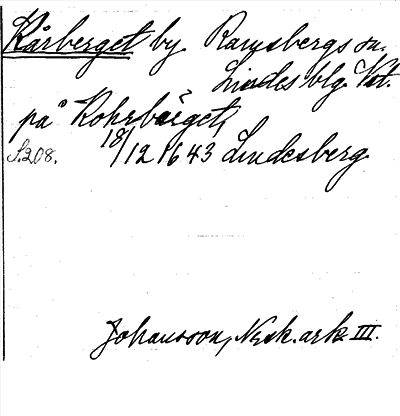 Kårberget by Ramsbergs sn.
Lindes blg. Vst.
på Kohrbärget,
S.208. 18/12 1643 Lindesberg
Johansson, Nysk. ark. III.